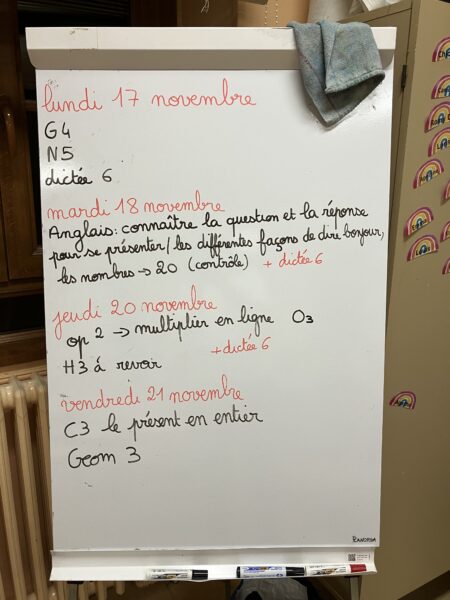 lundi 17 novembre
G4
N5
dictée 6
mardi 18 novembre
Anglais: connaître la question et la réponse
pour se présenter/ les différentes façons de dire bonjour,
les nombres → 20 (contrôle) + dictée 6
jeudi 20 novembre
op 2 → multiplier en ligne O3
+ dictée 6
H3 à revoir
vendredi 21 novembre
C3 le présent en entier
Geom 3